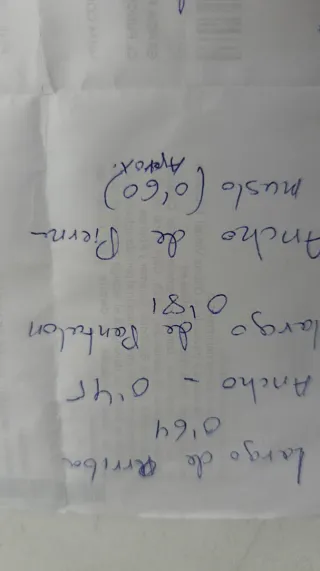 Largo de Arriba
0'64
Ancho - 0'45
Largo de Pantalon
0'81
Ancho de Pierna
muslo (0'60)
Aprox.